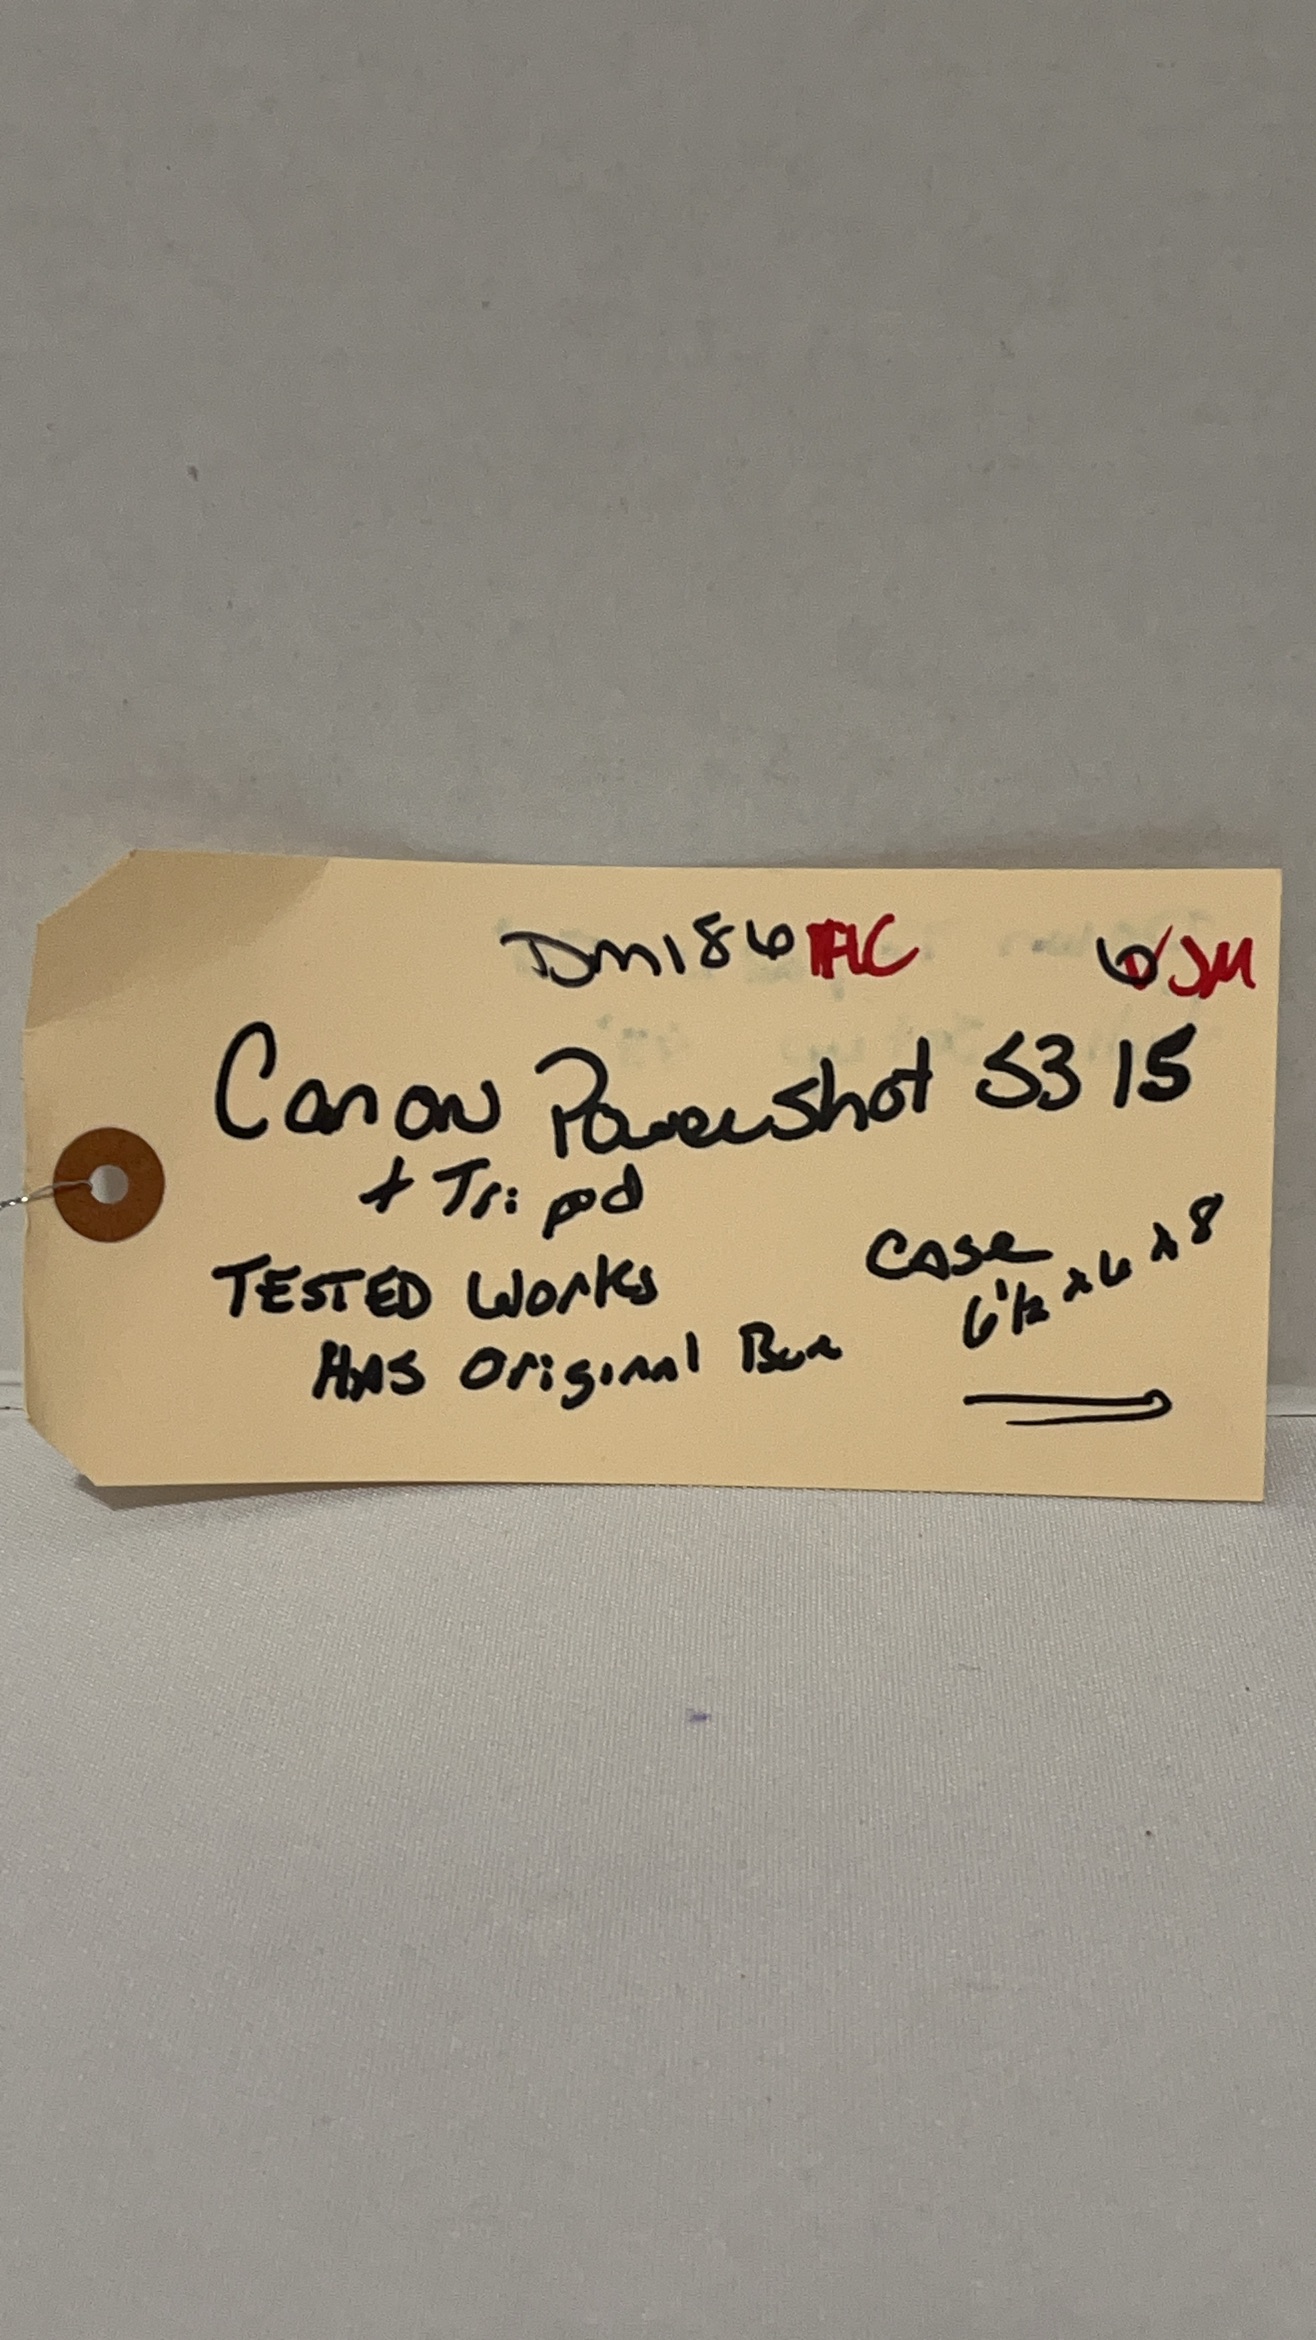 DM186 HC 6 JM
Canon Powershot S3 IS
+ Tripod
TESTED Works
Case
6 1/2 x 6 x 8
HAS Original Box